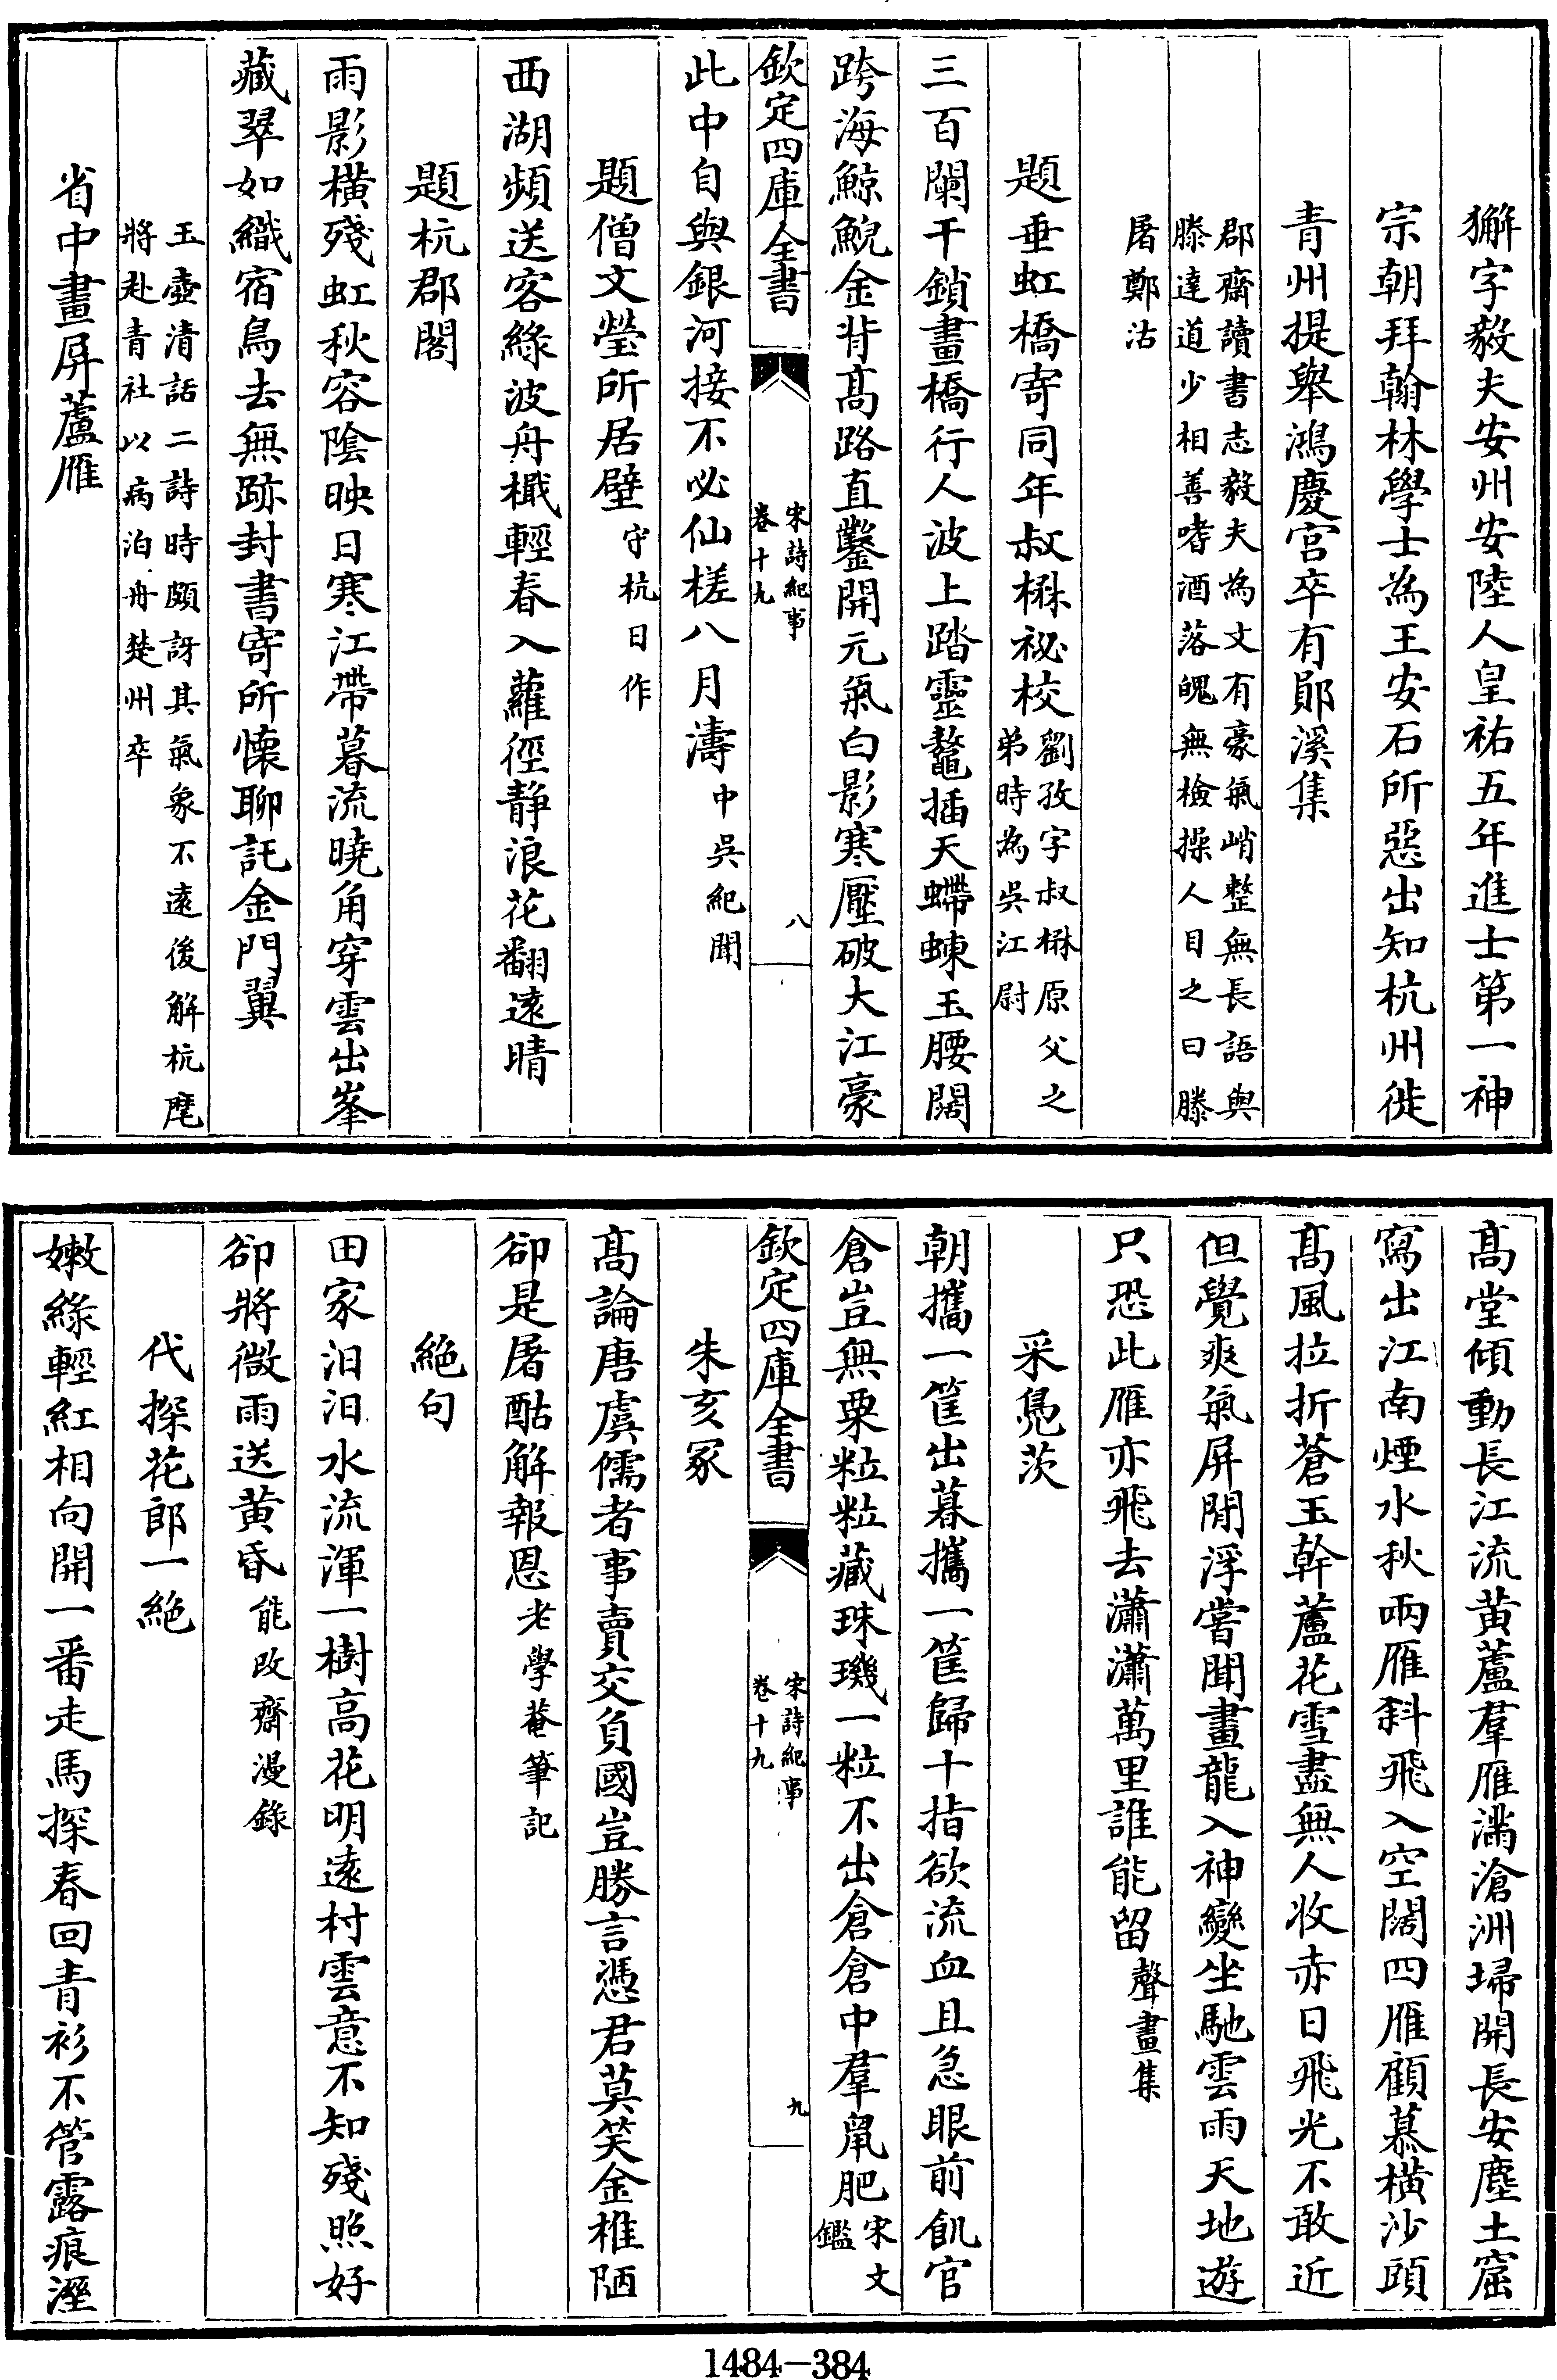 獬字毅夫安州安陸人皇祐五年進士第一神
宗朝拜翰林學士為王安石所惡出知杭州徙
青州提舉鴻慶宫卒有鄖溪集
郡齋讀書志毅夫為文有豪氣峭整無長語與
滕達道少相善嗜酒落魄無檢操人目之曰滕
屠鄭沽
題垂虹橋寄同年叔楙祕校
劉孜字叔楙原父之
弟時為吳江尉
三百闌干鎖畫橋行人波上踏靈鼇插天螮蝀玉腰闊
跨海鯨鯢金背髙路直鑿開元氣白影寒壓破大江豪
欽定四庫全書
宋詩紀事
卷十九
八
此中自與銀河接不必仙槎八月濤中吳紀聞
題僧文瑩所居壁守杭日作
西湖頻送客綠波舟檝輕春入蘿徑静浪花翻遠晴
題杭郡閣
雨影橫殘虹秋容陰映日寒江帶暮流曉角穿雲出峯
藏翠如織宿鳥去無跡封書寄所懐聊託金門翼
玉壺清話二詩時頗訝其氣象不遠後解杭麾
將赴青社以病泊舟楚州卒
省中畫屏蘆雁
髙堂傾動長江流黄蘆羣雁滿滄洲埽開長安塵土窟
寫出江南煙水秋兩雁斜飛入空闊四雁顧慕橫沙頭
髙風拉折蒼玉幹蘆花雪盡無人收赤日飛光不敢近
但覺爽氣屏間浮嘗聞畫龍入神變坐馳雲雨天地遊
只恐此雁亦飛去瀟瀟萬里誰能留聲畫集
采鳬茨
朝攜一筐出暮攜一筐歸十指欲流血且急眼前飢官
倉豈無粟粒粒藏珠璣一粒不出倉倉中羣鼠肥
宋文
鑑
欽定四庫全書
宋詩紀事
卷十九
九
朱亥冢
髙論唐虞儒者事賣交負國豈勝言憑君莫笑金椎陋
卻是屠酤解報恩老學菴筆記
絕句
田家汨汨水流渾一樹高花明遠村雲意不知殘照好
卻將微雨送黄昏能改齋漫錄
代探花郎一絕
嫩綠輕紅相向開一番走馬探春回青衫不管露痕溼
1484－384